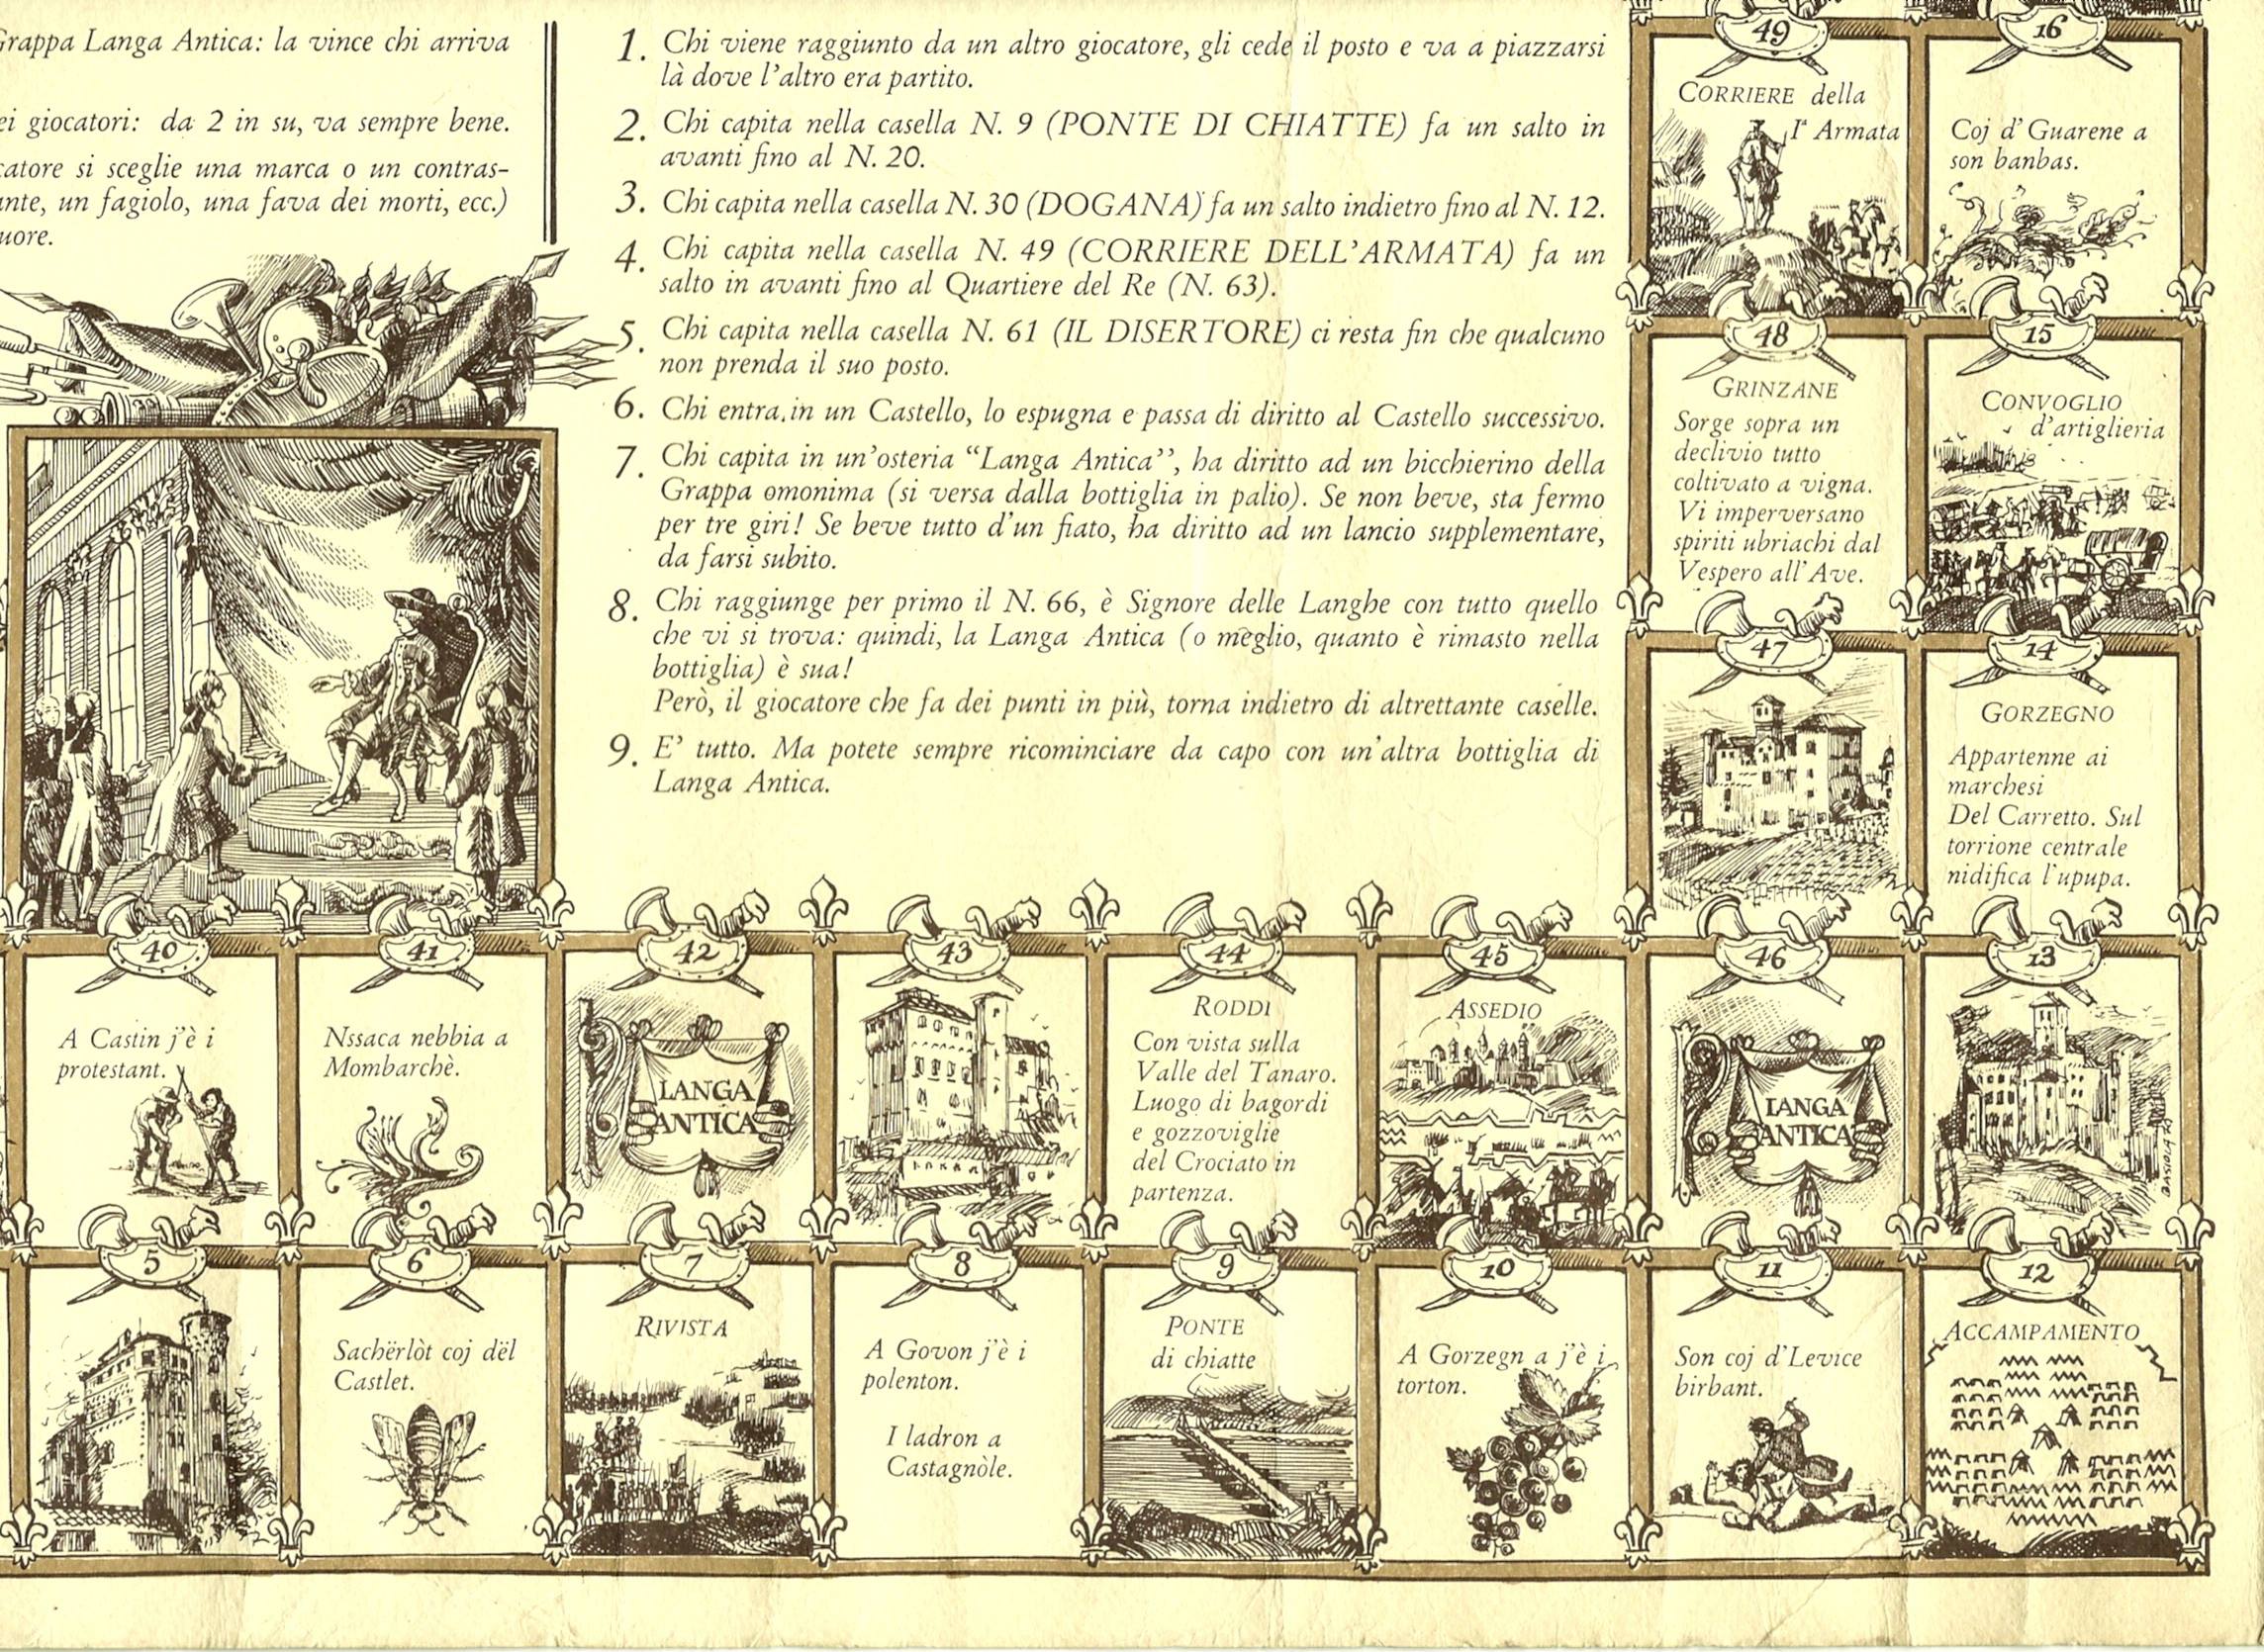 Grappa Langa Antica: la vince chi arriva
ei giocatori: da 2 in su, va sempre bene.
catore si sceglie una marca o un contras-
ante, un fagiolo, una fava dei morti, ecc.)
uore.
1. Chi viene raggiunto da un altro giocatore, gli cede il posto e va a piazzarsi
là dove l'altro era partito.
2. Chi capita nella casella N. 9 (PONTE DI CHIATTE) fa un salto in
avanti fino al N. 20.
3. Chi capita nella casella N. 30 (DOGANA) fa un salto indietro fino al N. 12.
4. Chi capita nella casella N. 49 (CORRIERE DELL'ARMATA) fa un
salto in avanti fino al Quartiere del Re (N. 63).
5. Chi capita nella casella N. 61 (IL DISERTORE) ci resta fin che qualcuno
non prenda il suo posto.
6. Chi entra in un Castello, lo espugna e passa di diritto al Castello successivo.
7. Chi capita in un'osteria "Langa Antica", ha diritto ad un bicchierino della
Grappa omonima (si versa dalla bottiglia in palio). Se non beve, sta fermo
per tre giri! Se beve tutto d'un fiato, ha diritto ad un lancio supplementare,
da farsi subito.
8. Chi raggiunge per primo il N. 66, è Signore delle Langhe con tutto quello
che vi si trova: quindi, la Langa Antica (o meglio, quanto è rimasto nella
bottiglia) è sua!
Però, il giocatore che fa dei punti in più, torna indietro di altrettante caselle.
9. E' tutto. Ma potete sempre ricominciare da capo con un'altra bottiglia di
Langa Antica.
49
CORRIERE della
Iª Armata
16
Coj d'Guarene a
son banbas.
48
GRINZANE
Sorge sopra un
declivio tutto
coltivato a vigna.
Vi imperversano
spiriti ubriachi dal
Vespero all'Ave.
15
CONVOGLIO
d'artiglieria
47
14
GORZEGNO
Appartenne ai
marchesi
Del Carretto. Sul
torrione centrale
nidifica l'upupa.
40
A Castin j'è i
protestant.
41
Nssaca nebbia a
Mombarchè.
42
LANGA
ANTICA
43
44
RODDI
Con vista sulla
Valle del Tanaro.
Luogo di bagordi
e gozzoviglie
del Crociato in
partenza.
45
ASSEDIO
46
LANGA
ANTICA
13
5
6
Sachërlòt coj dël
Castlet.
7
RIVISTA
8
A Govon j'è i
polenton.
I ladron a
Castagnòle.
9
PONTE
di chiatte
10
A Gorzegn a j'è i
torton.
11
Son coj d'Levice
birbant.
12
ACCAMPAMENTO